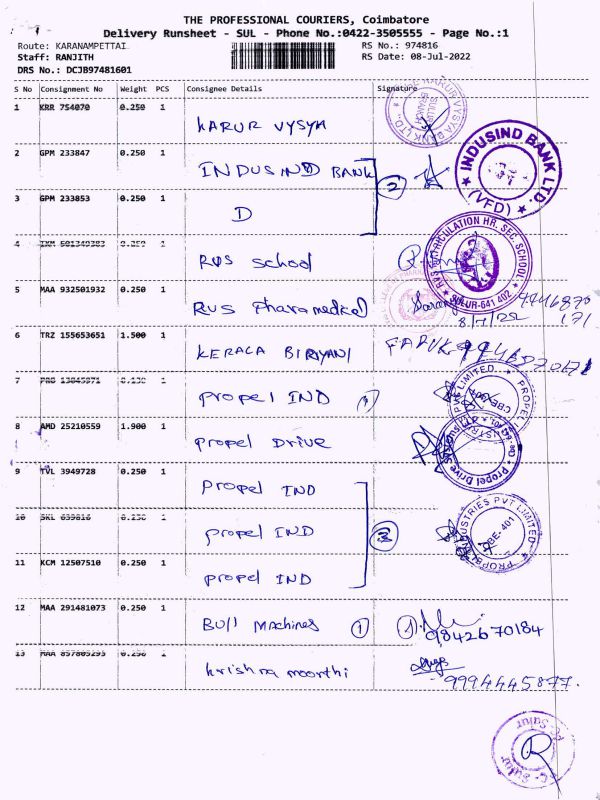 THE PROFESSIONAL COURIERS, Coimbatore
Delivery Runsheet - SUL - Phone No.:0422-3505555 - Page No.:1
Route: KARANAMPETTAI RS No.: 974816
Staff: RANJITH RS Date: 08-Jul-2022
DRS No.: DCJB97481601
S No Consignment No Weight PCS Consignee Details Signature
1 KRR 754070 0.250 1
KARUR VYSYA
SULUR BRANCH
2 GPM 233847 0.250 1
INDUSIND BANK
2
INDUSIND BANK LTD.
(VFD)
3 GPM 233853 0.250 1
D
4 0.250 1
RVS School
SULUR-641 402
5 MAA 932501932 0.250 1
RVS Pharamedical
8/7/22
6 TRZ 155653651 1.500 1
KERALA BIRIYANI
FARUK
7 1
Propel IND 1
8 AMD 25210559 1.900 1
Propel DRIVE
9 TVL 3949728 0.250 1
Propel IND
10 SKL 639816 0.250 1
Propel IND 3
11 KCM 12507510 0.250 1
Propel IND
12 MAA 291481073 0.250 1
Bull Machines 1
9842670184
13 MAA 857805293 0.250 1
Krishna moorthi
9994445877.